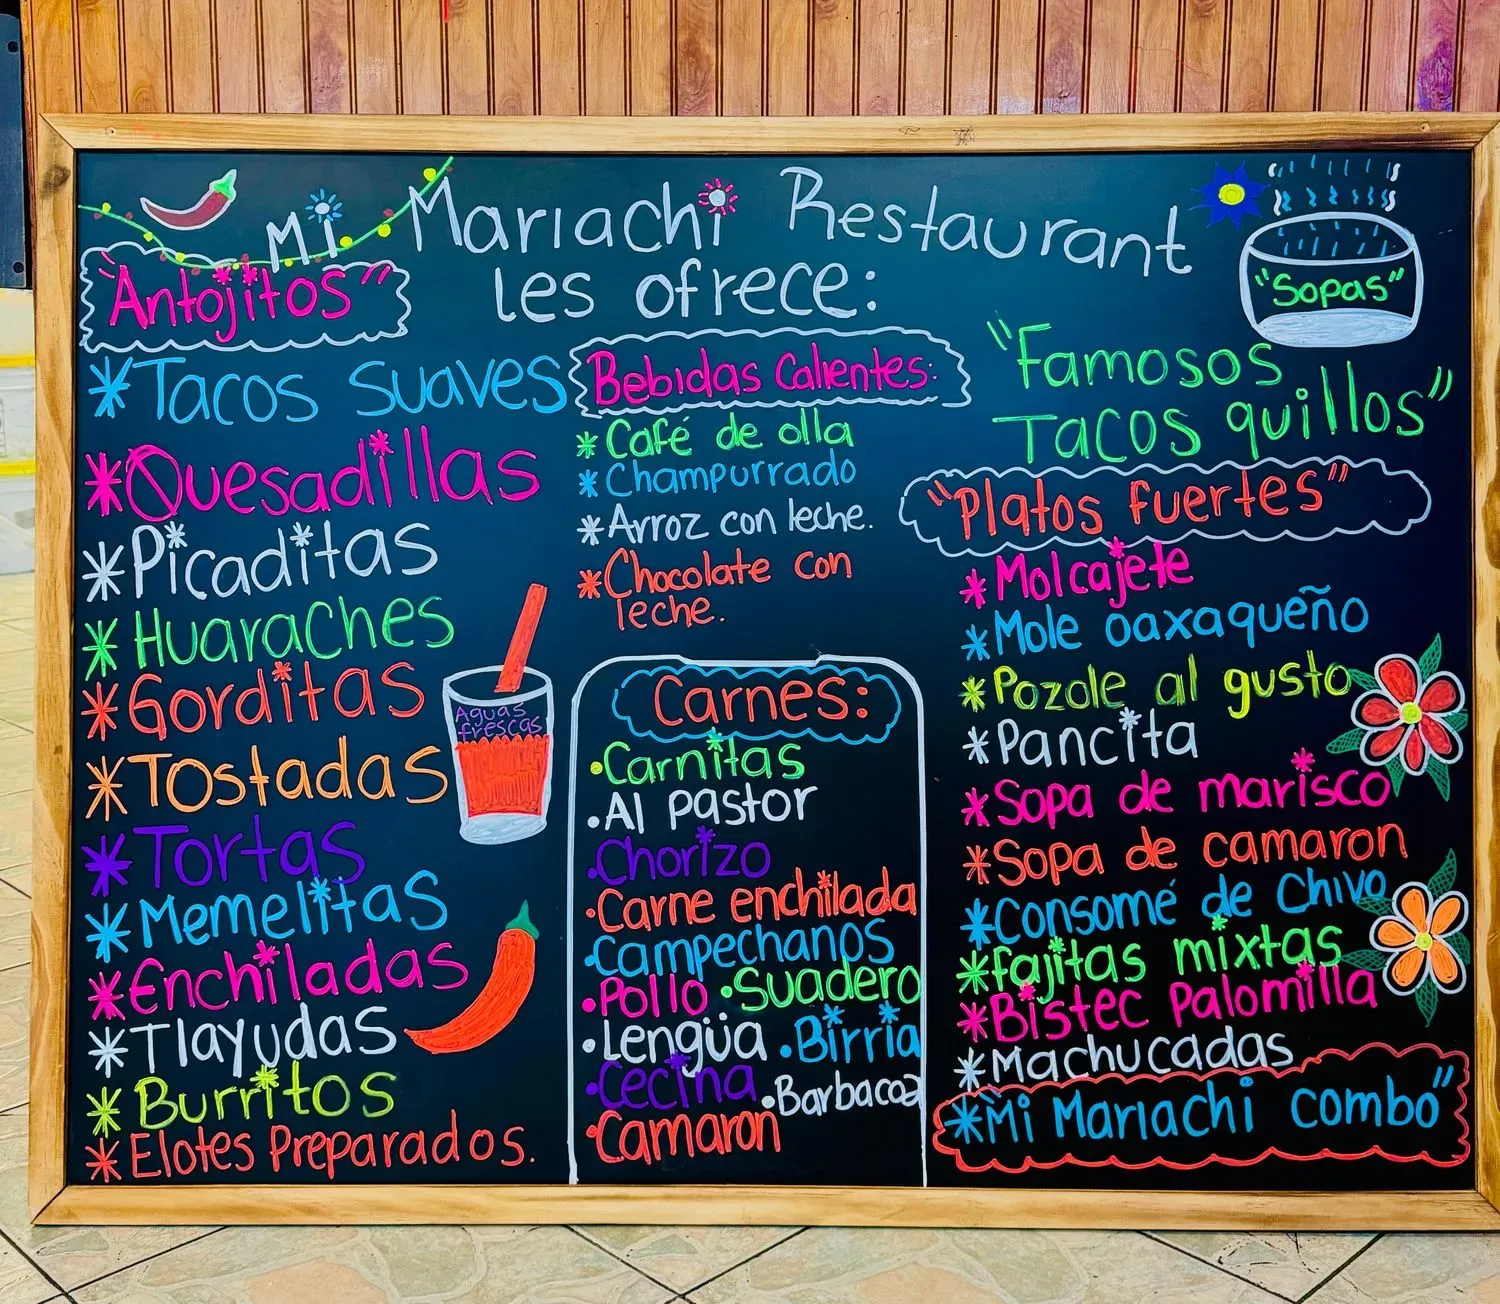 Mi Mariachi Restaurant
les ofrece:
"Antojitos"
*Tacos suaves
*Quesadillas
*Picaditas
*Huaraches
*Gorditas
*Tostadas
*Tortas
*Memelitas
*Enchiladas
*Tlayudas
*Burritos
*Elotes Preparados.
Aguas
frescas
Bebidas Calientes:
*Café de olla
*Champurrado
*Arroz con leche.
*Chocolate con
leche.
Carnes:
•Carnitas
•Al pastor
•Chorizo
•Carne enchilada
•Campechanos
•Pollo •Suadero
•Lengüa •Birria
•Cecina •Barbacoa
•Camaron
"Sopas"
"Famosos
Tacos quillos"
"Platos fuertes"
*Molcajete
*Mole oaxaqueño
*Pozole al gusto
*Pancita
*Sopa de marisco
*Sopa de camaron
*Consomé de Chivo
*fajitas mixtas
*Bistec Palomilla
*Machucadas
*"Mi Mariachi combo"